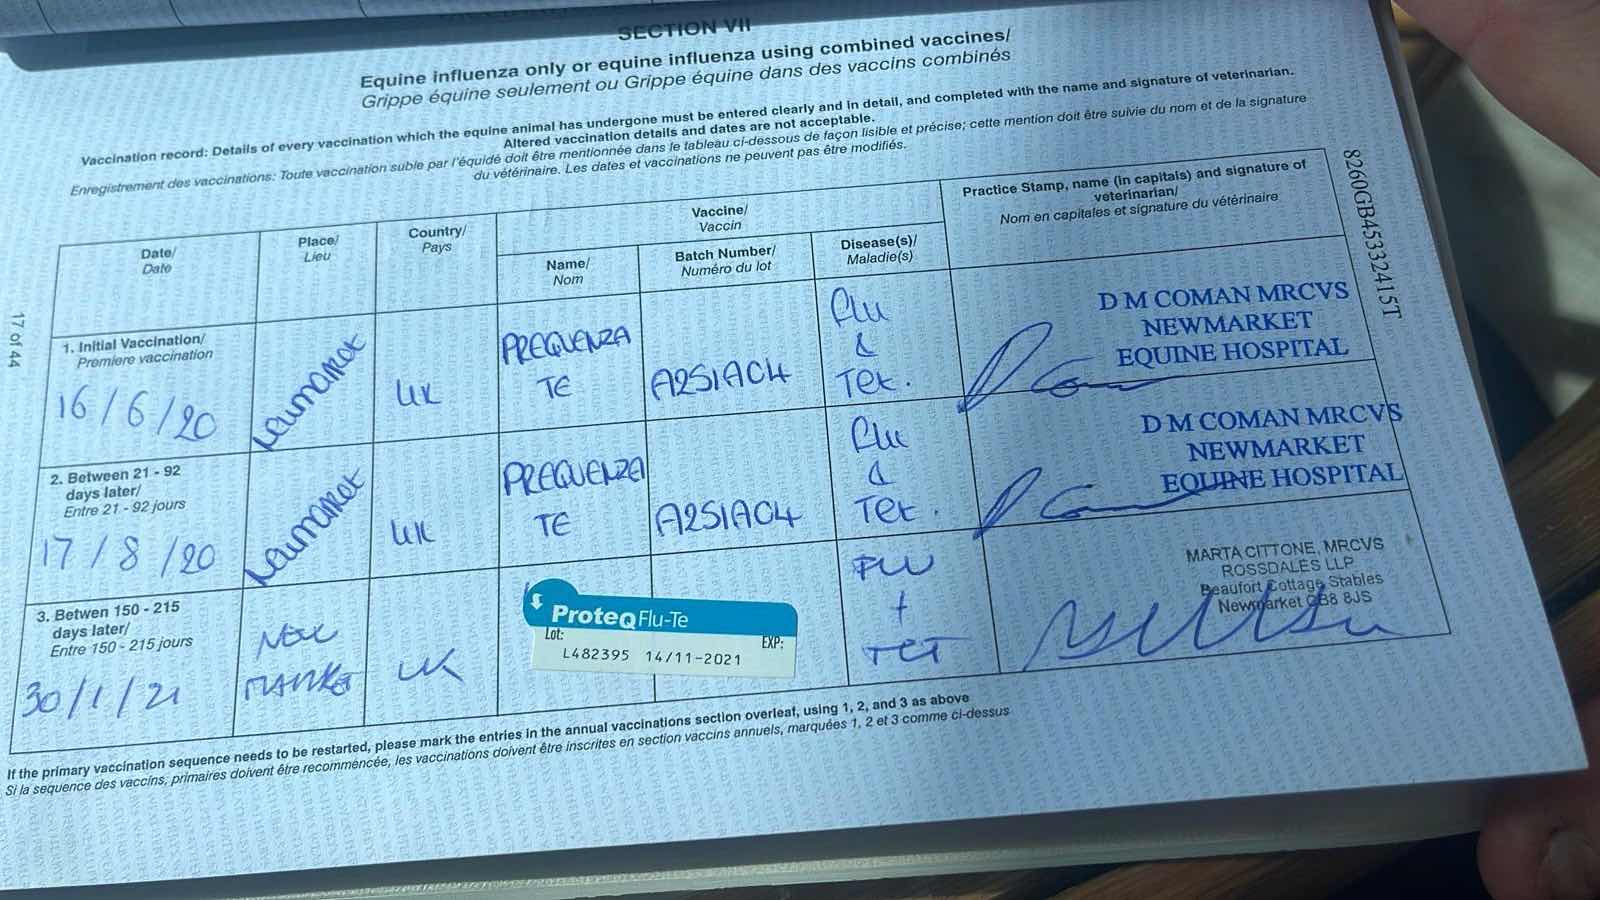 SECTION VII
Equine influenza only or equine influenza using combined vaccines/
Grippe équine seulement ou Grippe équine dans des vaccins combinés
Vaccination record: Details of every vaccination which the equine animal has undergone must be entered clearly and in detail, and completed with the name and signature of veterinarian.
Altered vaccination details and dates are not acceptable.
Enregistrement des vaccinations: Toute vaccination subie par l'équidé doit être mentionnée dans le tableau ci-dessous de façon lisible et précise; cette mention doit être suivie du nom et de la signature
du vétérinaire. Les dates et vaccinations ne peuvent pas être modifiés.
Date/
Date
Place/
Lieu
Country/
Pays
Vaccine/
Vaccin
Name/
Nom
Batch Number/
Numéro du lot
Disease(s)/
Maladie(s)
Practice Stamp, name (in capitals) and signature of
veterinarian/
Nom en capitales et signature du vétérinaire
1. Initial Vaccination/
Premiere vaccination
16/6/20
Newmarket
UK
PREQUENZA
TE
A251AC4
Flu
&
Tet.
D M COMAN MRCVS
NEWMARKET
EQUINE HOSPITAL
2. Between 21 - 92
days later/
Entre 21 - 92 jours
17/8/20
Newmarket
UK
PREQUENZA
TE
A251AC4
Flu
&
Tet.
D M COMAN MRCVS
NEWMARKET
EQUINE HOSPITAL
3. Betwen 150 - 215
days later/
Entre 150 - 215 jours
30/1/21
NEW
MARKET
UK
ProteqFlu-Te
Lot:
EXP:
L482395 14/11-2021
FLU
+
TET
MARTA CITTONE, MRCVS
ROSSDALES LLP
Beaufort Cottage Stables
Newmarket CB8 8JS
If the primary vaccination sequence needs to be restarted, please mark the entries in the annual vaccinations section overleaf, using 1, 2, and 3 as above
Si la sequence des vaccins, primaires doivent être recommencée, les vaccinations doivent être inscrites en section vaccins annuels, marquées 1, 2 et 3 comme ci-dessus
17 of 44
8260GB45332415T